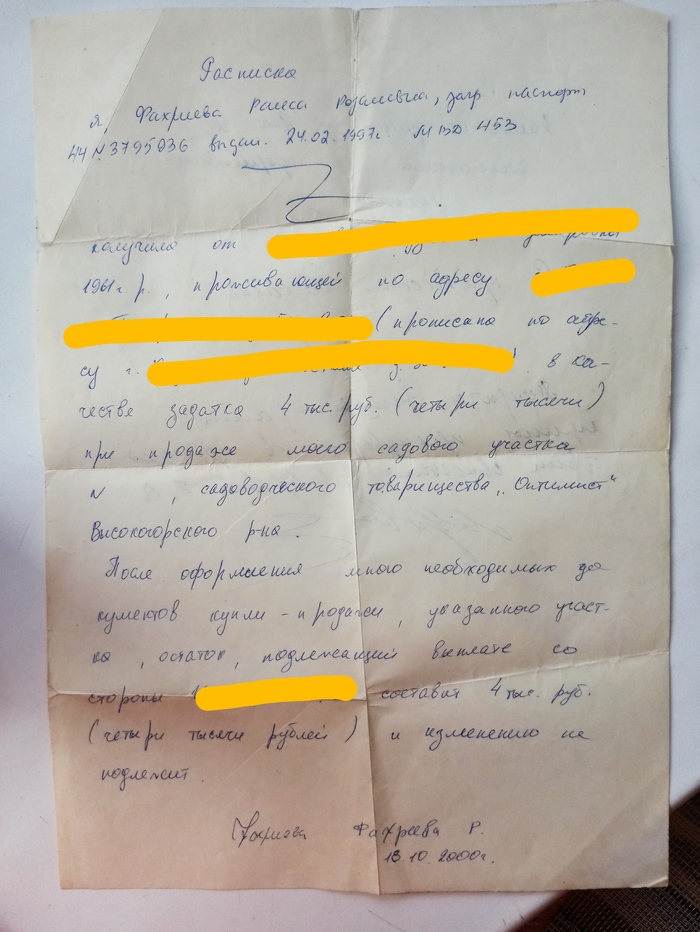 Расписка
Я, Фахриева Раиса Розалевна, загр паспорт
44 N 3795036 выдан. 24.02.1997г МВД 453
получила от
1961 г. р., проживающей по адресу
(прописана по адре-
су г. в ка-
честве задатка 4 тыс. руб. (четыри тысячи)
при продаже моего садового участка
N , садоводческого товарищества „Оптимист"
Высокогорского р-на.
После оформления мною необходимых до
кументов купли-продажи, указанного участ-
ка, остаток, подлежащий выплате со
стороны составит 4 тыс. руб.
(четыри тысячи рублей) и изменению не
подлежит.
Фахриева Р.
13.10.2000г.